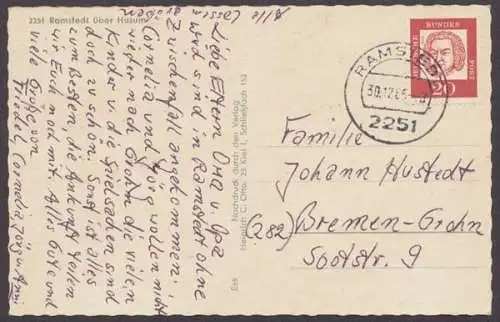 2251 Ramstedt über Husum
Alle lassen
grüßen
Liebe Eltern Oma u. Opa
wir sind in Ramstedt ohne
Zwischenfall angekommen.
Cornelia und Jörg wollen nicht
wieder nach Grohn die vielen
Kinder u. die Spielsachen sind
doch zu schön. Sonst ist alles
zum Besten, die Ankunft teilen
wir Euch noch mit. Alles Gute und
viele Grüße von
Friedel, Cornelia, Jörg u. Anni
Nachdruck durch den Verlag
Heinrich C. Otto, 23 Kiel 1, Schließfach 152
DEUTSCHE
BUNDES
POST
20
RAMSTEDT
30.12.65
2251
Familie
Johann Hustedt
(282) Bremen-Grohn
Sootstr. 9